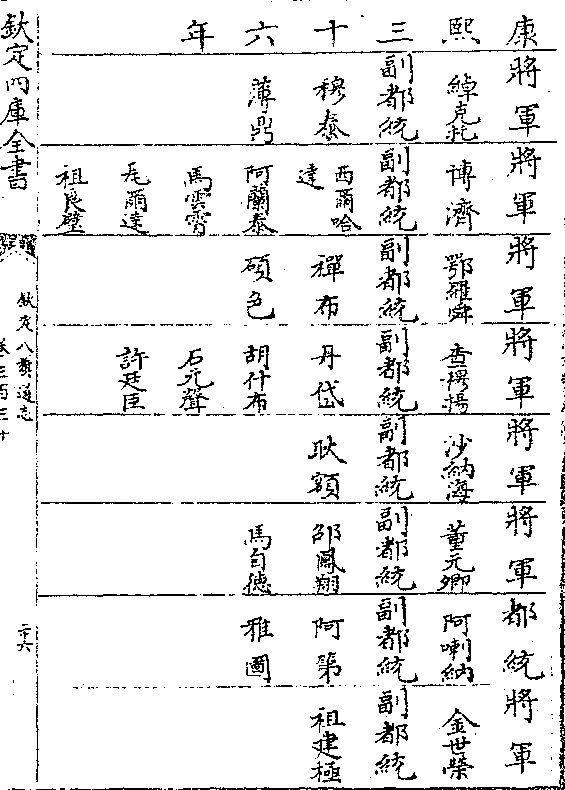 康 將軍 將軍 將軍 將軍 將軍 將軍 都統 將軍
熙 綽克托 博濟 鄂羅舜 沙納海 董元卿 阿喇納 金世榮
三 副都統 副都統 副都統 副都統 副都統 副都統 副都統 副都統
十 穆泰 西爾哈達 禪布 丹岱 耿額 邵鳳翔 阿第 祖建極
六 薄鼎 阿蘭泰 碩色 胡什布 馬自德 雅圖
年 馬雲霄 石元聲
尾爾達 許廷臣
祖良璧
欽定四庫全書
欽定八旗通志
卷三百三十
二十六